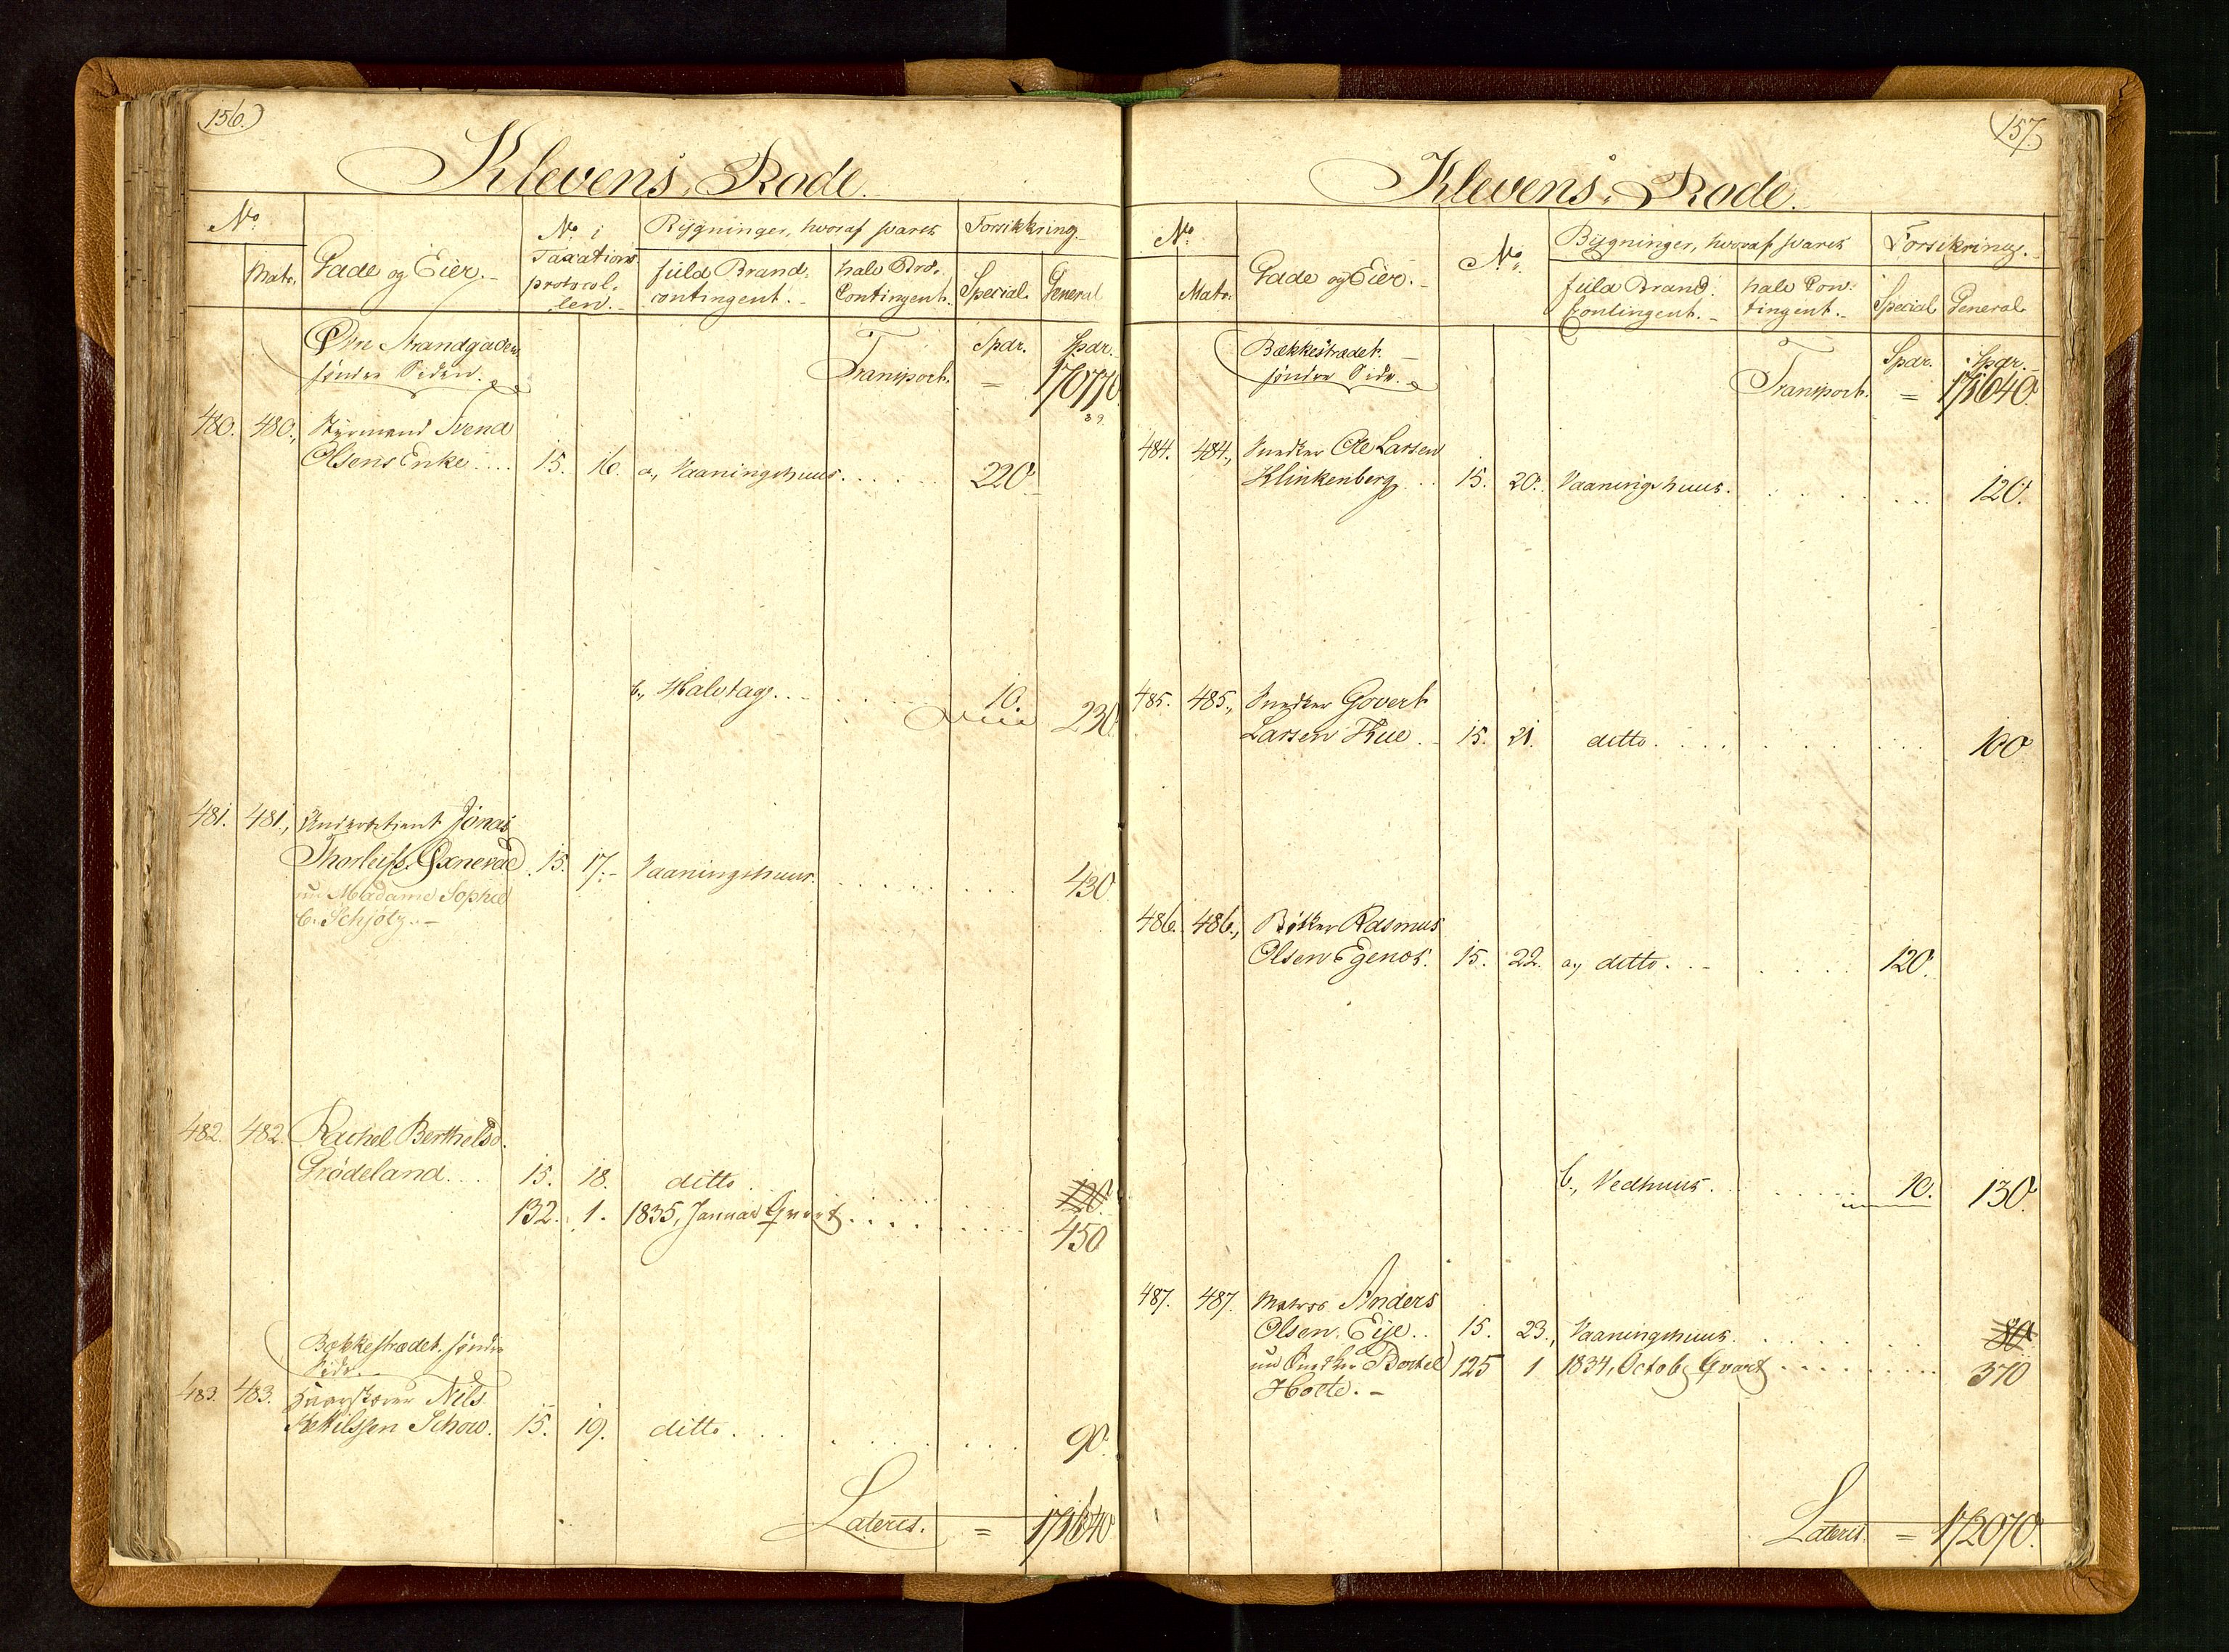 156.
Klevens, Rode.
No. Gade og Eier. No. i Bygninger, hvoraf svares Forsikkring.
Matr. Taxations protocol-len. fuld Brand-contingent. halv Brd. Contingent. Special. General
Øvre Strandgaden Spdr. Spdr.
søndre Siden. Transport. = 170770
480. 480., Styrmand Svend
Olsens Enke .... 15. 16. a, Vaaningshuus. ..... 220.
b., Halvtag. .. 10.
230.
481. 481., Jonas
Thorleifs. Oxnevad 15. 17. Vaaningshuus. ....... 430.
nu Madame Sophie
C. Schjøtz.
482. 482. Rachel Berthelsd.
Grödeland. ... 15. 18. ditto. 120.
132. 1. 1835, Januar Qvart. ....... 450
Bækkestrædet. søndre
Side.
483. 483. Nils
Ketilssen Schow. 15. 19. ditto. ...... 90.
Lateris. = 171640
157.
Klevens, Rode.
No. Gade og Eier. No. Bygninger, hvoraf svares Forsikring.
Matr. fuld Brand-Contingent. halv Con-tingent. Special General.
Bækkestrædet. Spdr. Spdr.
søndre Side. Transport. = 171640.
484. 484., Snedker Ole Larsen
Klinkenberg .. 15. 20. Vaaningshuus. ....... 120.
485. 485., Snedker Govert
Larsen Thue. 15. 21. ditto. ....... 100.
486. 486., Bødker Rasmus
Olsen Egenos. 15. 22. a, ditto. ...... 120.
b., Vedhuus. ...... 10. 130.
487. 487. Matros Anders
Olsen Eije.. 15. 23., Vaaningshuus. ..... 80.
nu Snedker Bertel 125 1 1834, Octob. Qvart ....... 370
Hoete.
Lateris. = 172070.